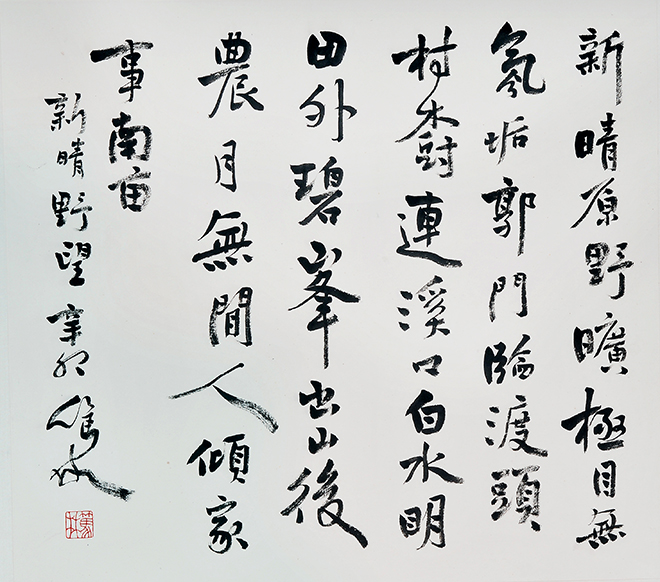 新晴原野曠極目無
氛垢郭門臨渡頭
村樹連溪口白水明
田外碧峯出山後
農月無閒人傾家
事南亩
新晴野望 辛卯